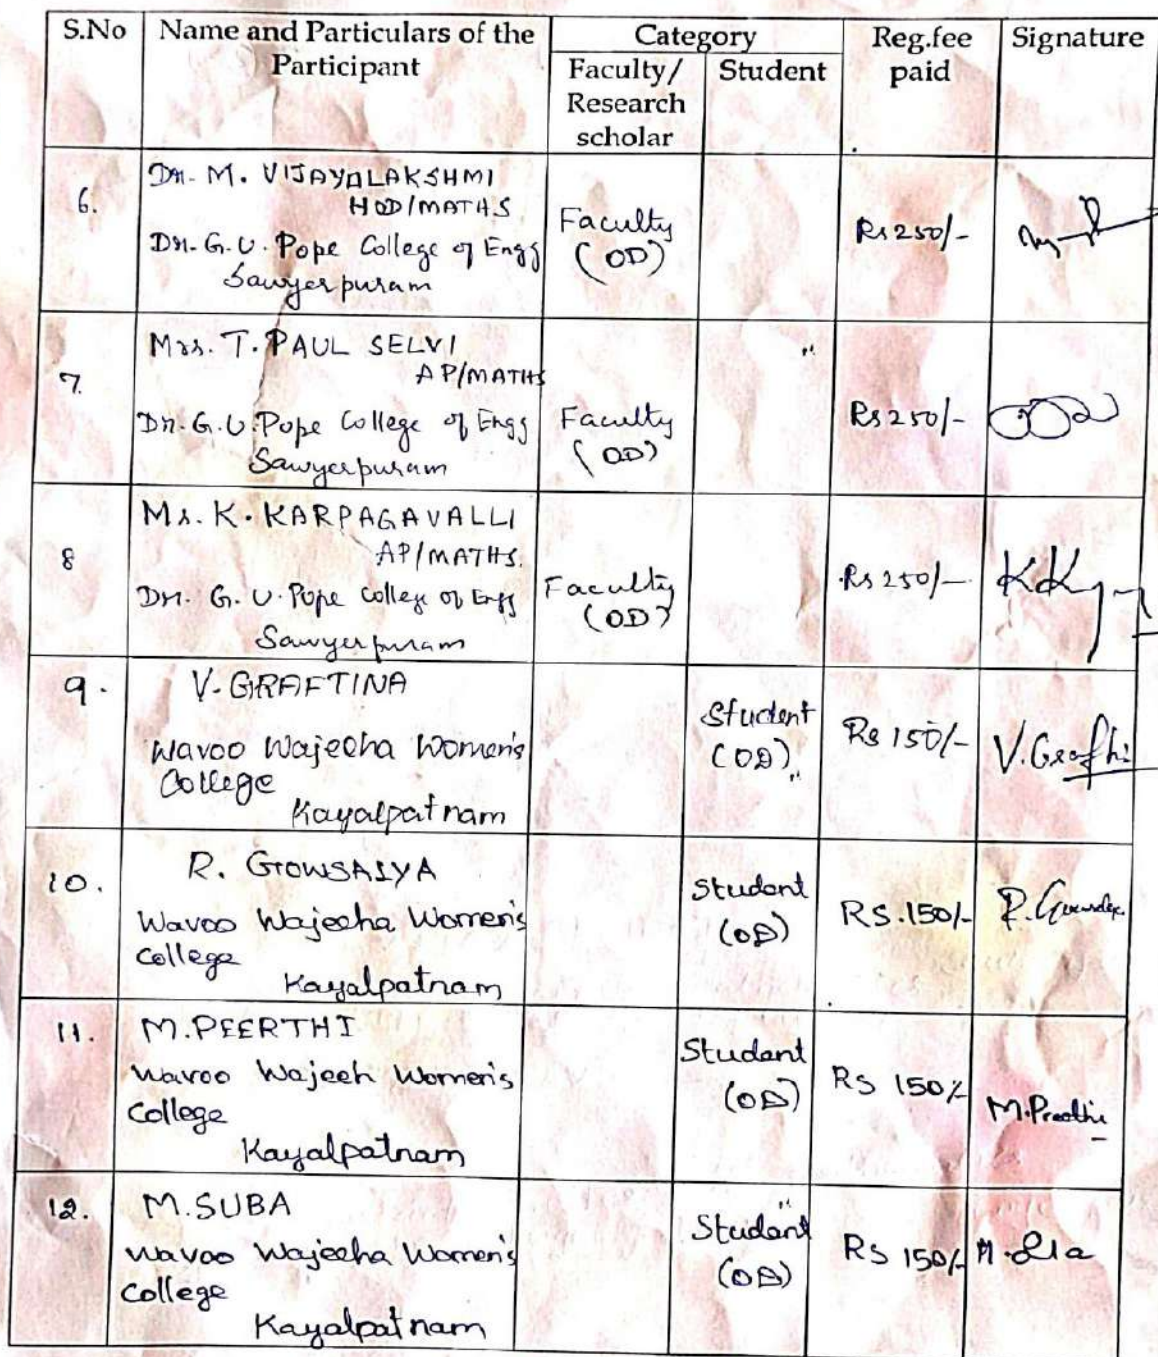 S.No Name and Particulars of the Participant Category Reg.fee paid Signature
Faculty/ Research scholar Student
6.
Dr. M. VIJAYALAKSHMI
HOD/MATHS
Dr. G.U. Pope College of Engg
Sawyerpuram
Faculty
(OD)
Rs 250/-
7.
Mrs. T. PAUL SELVI
AP/MATHS
Dr. G.U. Pope College of Engg
Sawyerpuram
Faculty
(OD)
Rs 250/-
8
Ms. K. KARPAGAVALLI
AP/MATHS.
Dr. G.U. Pope College of Engg
Sawyerpuram
Faculty
(OD)
Rs 250/-
9.
V. GRAFTINA
Wavoo Wajeeha Women's
College
Kayalpatnam
Student
(OD)
Rs 150/-
V. Grafti
10.
R. GOWSALYA
Wavoo Wajeeha Women's
College
Kayalpatnam
Student
(OD)
RS.150/-
11.
M. PEERTHI
Wavoo Wajeeh Women's
College
Kayalpatnam
Student
(OD)
RS 150/-
M. Preethi
12.
M. SUBA
Wavoo Wajeeha Women's
College
Kayalpatnam
Student
(OD)
RS 150/-